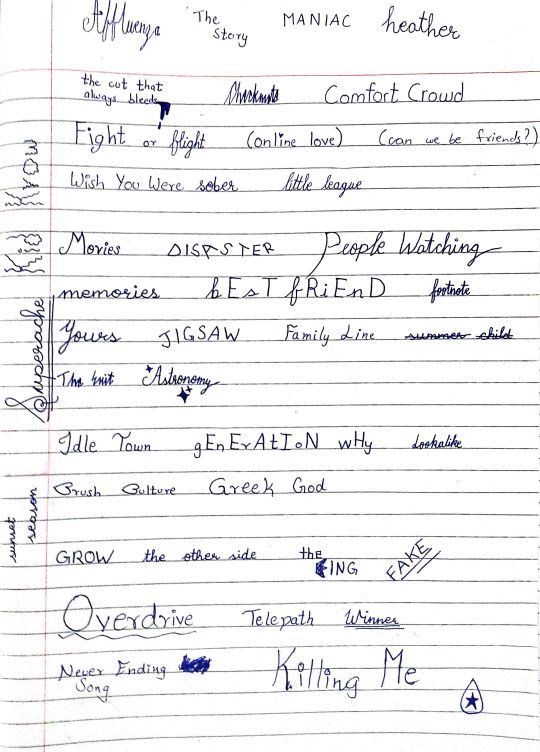 Affluenza The Story MANIAC heather
the cut that always bleeds Checkmate Comfort Crowd
Fight or flight (online love) (can we be friends?)
Wish You Were sober little league
Kid Krow
Movies DISASTER People Watching
memories bEsT fRiEnD footnote
Yours JIGSAW Family Line summer child
The Exit Astronomy
Superache
Idle Town gEnErAtIoN wHy Lookalike
Crush Culture Greek God
sunset season
GROW the other side the KING FAKE
Overdrive Telepath Winner
Never Ending Song Killing Me